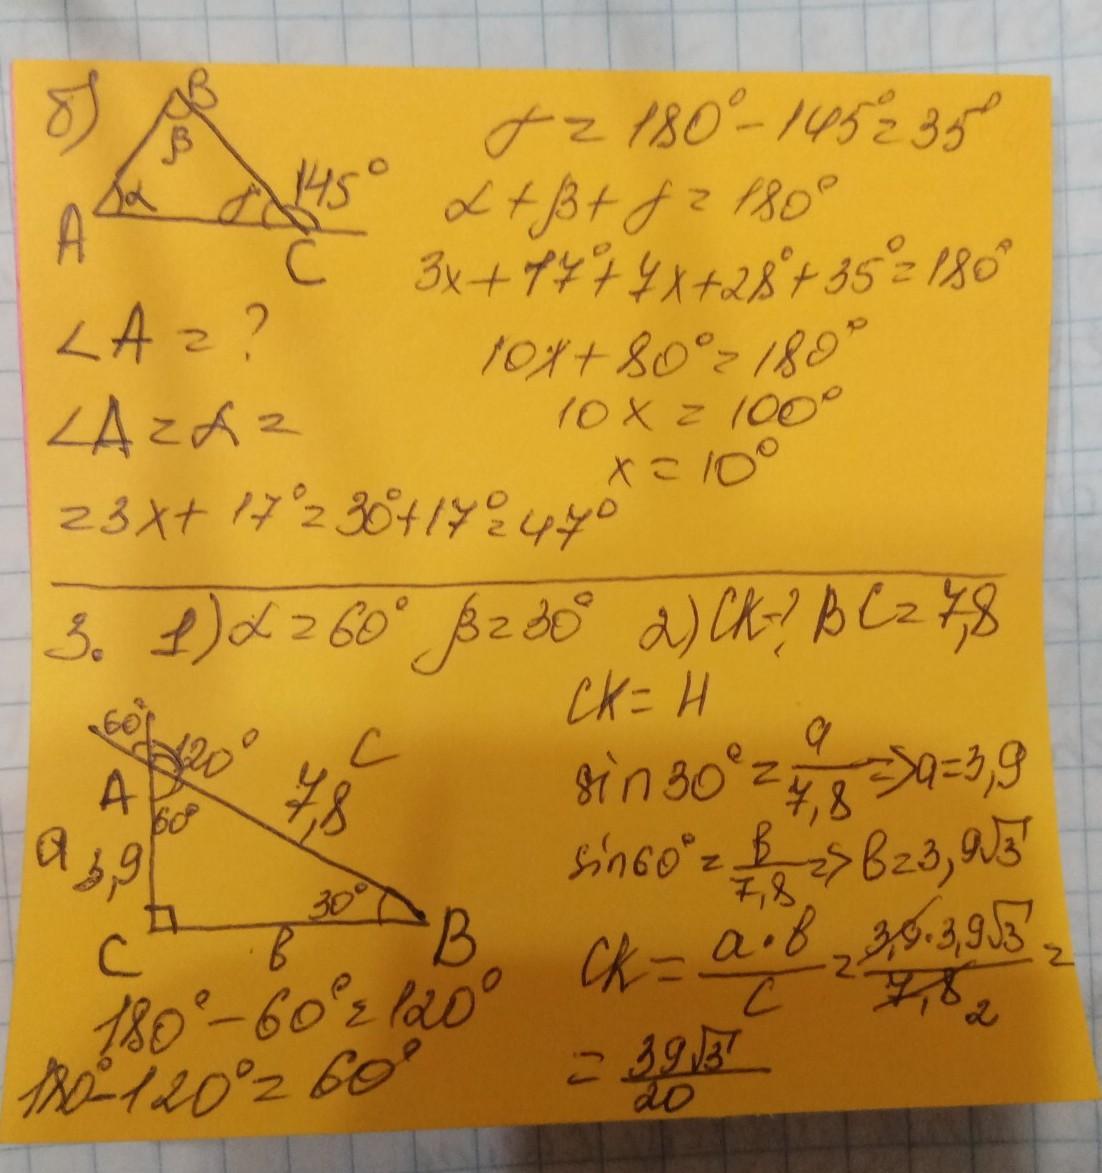 б)
B
β
A
α
γ
145°
C
γ = 180° - 145° = 35°
α + β + γ = 180°
3x + 17° + 7x + 28° + 35° = 180°
∠A = ?
10x + 80° = 180°
∠A = α =
10x = 100°
x = 10°
= 3x + 17° = 30° + 17° = 47°
3. 1) α = 60° β = 30° 2) CK-? BC = 7,8
CK = H
60°
120°
C
A
7,8
60°
a
3,9
30°
C
в
B
sin30° = a/7,8 => a = 3,9
sin60° = в/7,8 => в = 3,9√3
CK = a·в/c = 3,9·3,9√3/7,8 2 =
180° - 60° = 120°
= 39√3/20
180° - 120° = 60°